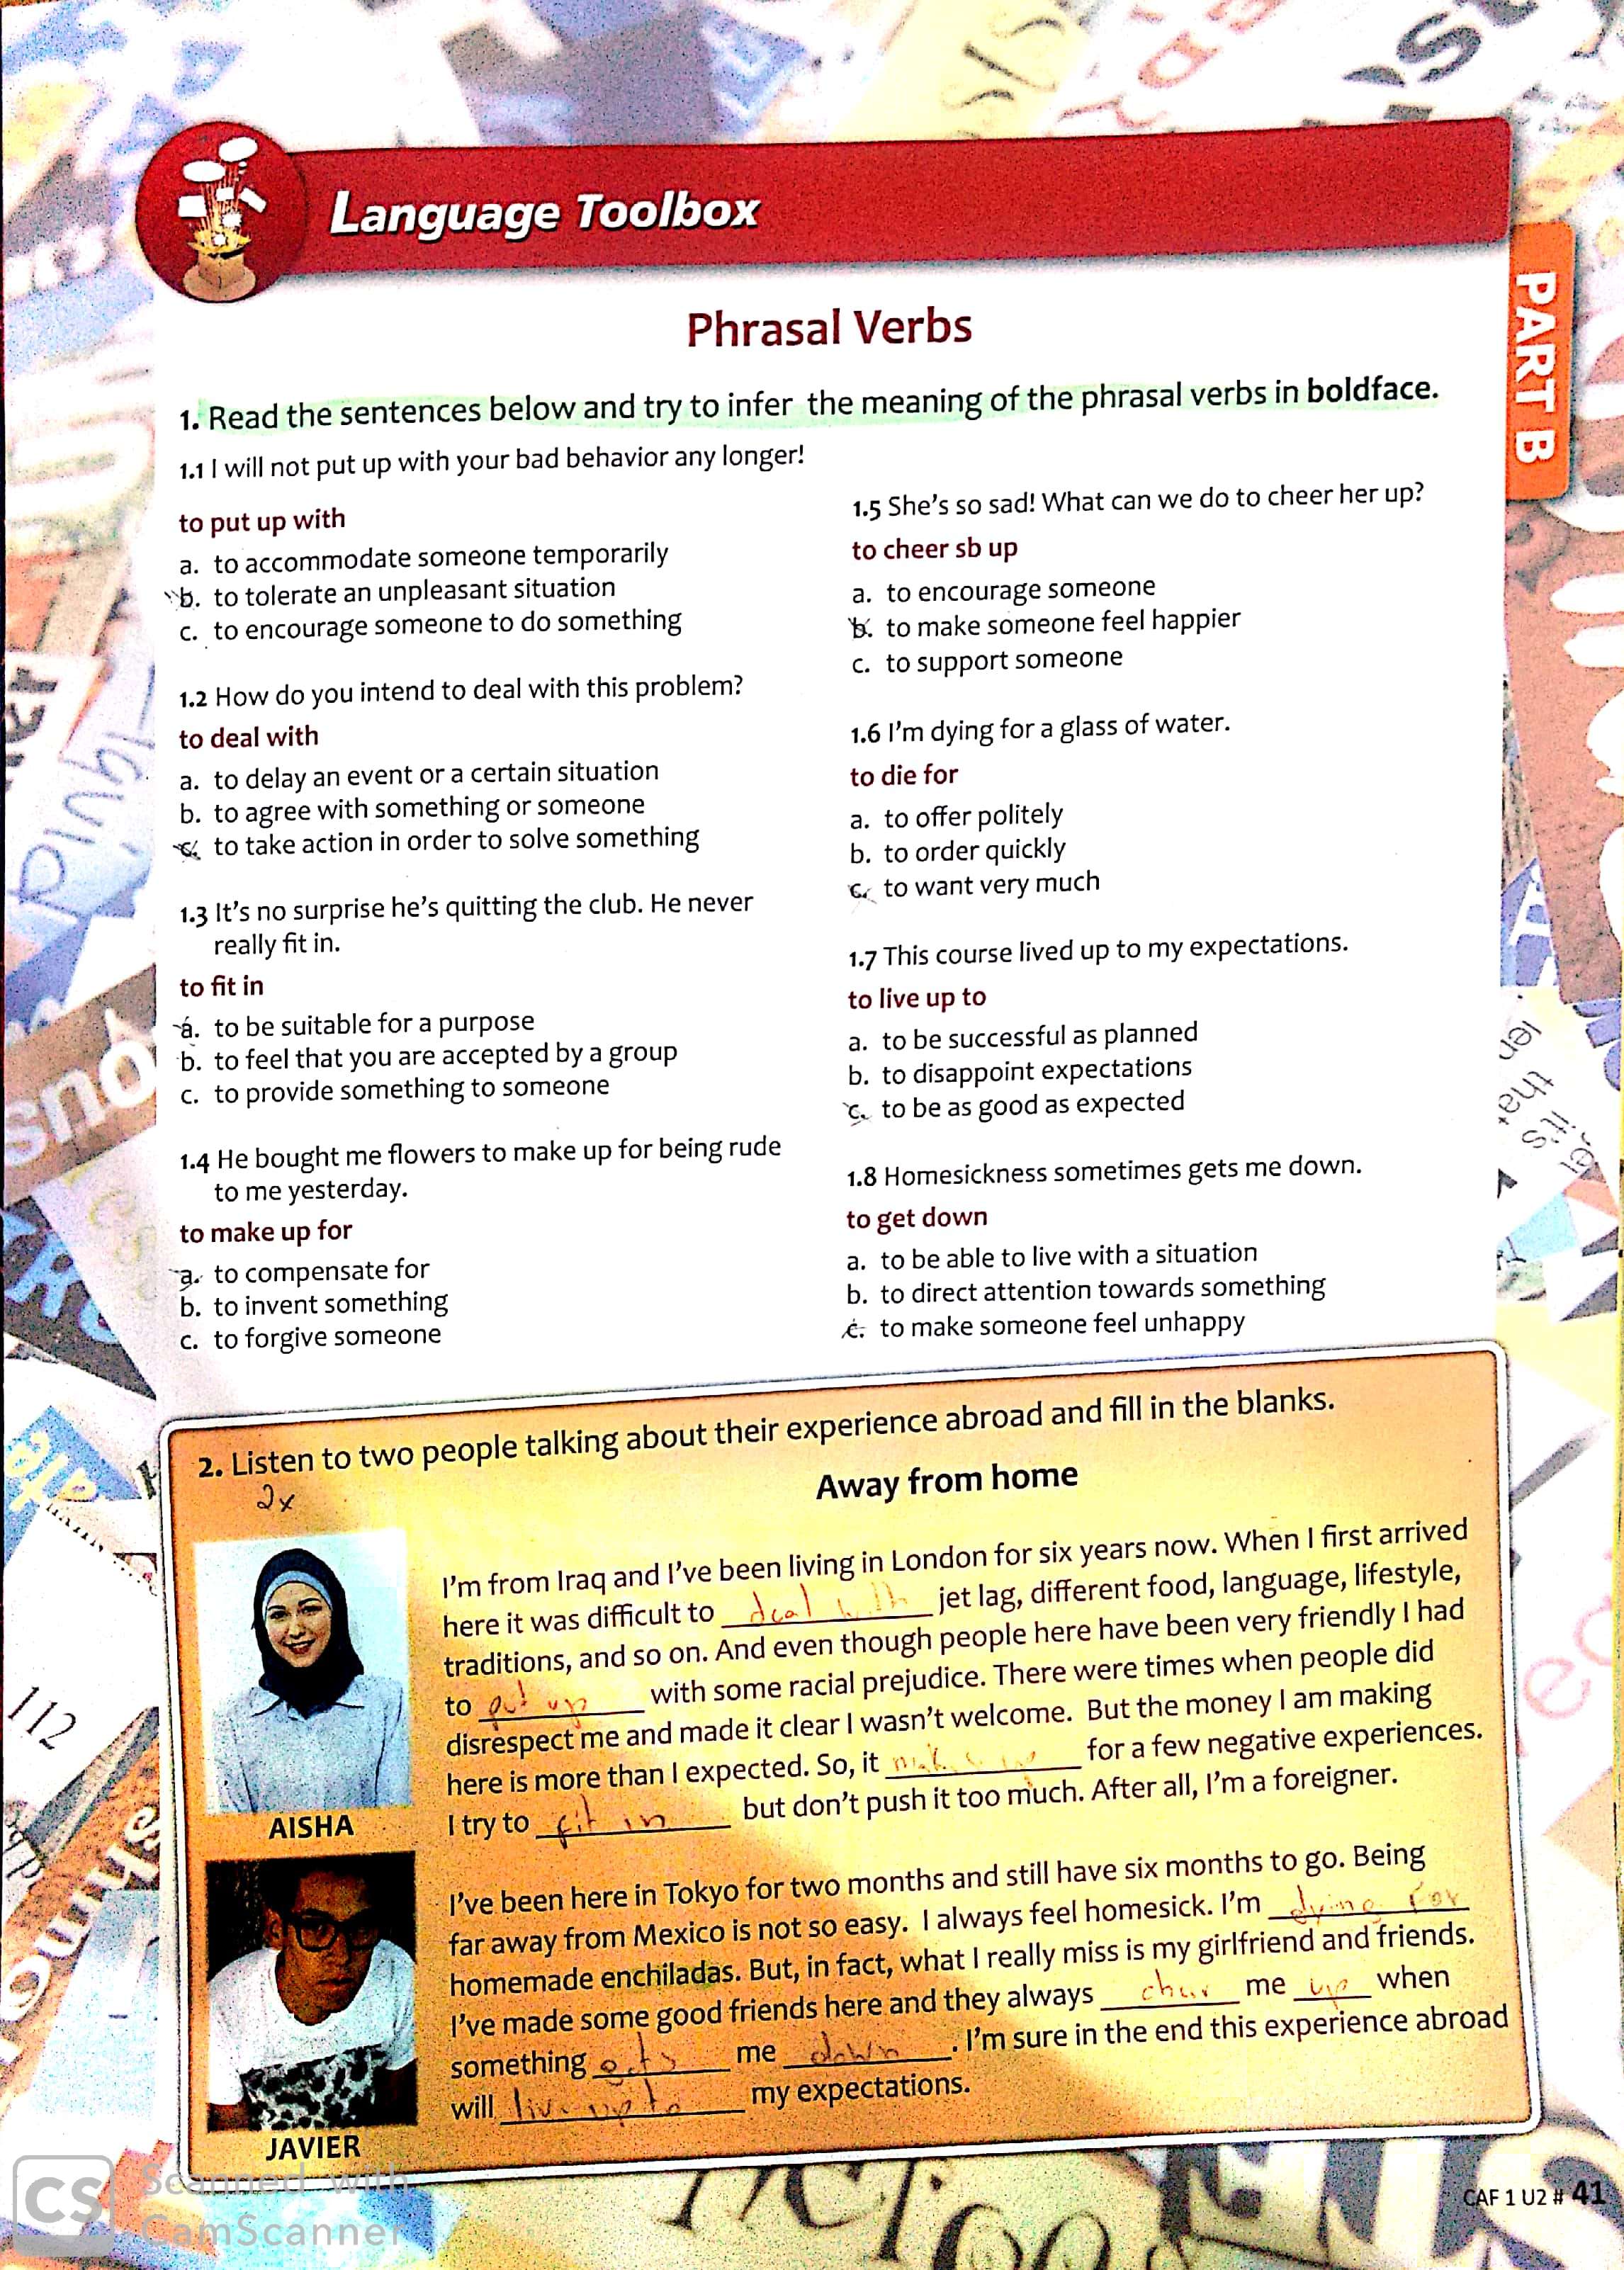 Language Toolbox
PART B
Phrasal Verbs
1. Read the sentences below and try to infer the meaning of the phrasal verbs in boldface.
1.1 I will not put up with your bad behavior any longer!
to put up with
a. to accommodate someone temporarily
b. to tolerate an unpleasant situation
c. to encourage someone to do something
1.2 How do you intend to deal with this problem?
to deal with
a. to delay an event or a certain situation
b. to agree with something or someone
c. to take action in order to solve something
1.3 It's no surprise he's quitting the club. He never
really fit in.
to fit in
a. to be suitable for a purpose
b. to feel that you are accepted by a group
c. to provide something to someone
1.4 He bought me flowers to make up for being rude
to me yesterday.
to make up for
a. to compensate for
b. to invent something
c. to forgive someone
1.5 She's so sad! What can we do to cheer her up?
to cheer sb up
a. to encourage someone
b. to make someone feel happier
c. to support someone
1.6 I'm dying for a glass of water.
to die for
a. to offer politely
b. to order quickly
c. to want very much
1.7 This course lived up to my expectations.
to live up to
a. to be successful as planned
b. to disappoint expectations
c. to be as good as expected
1.8 Homesickness sometimes gets me down.
to get down
a. to be able to live with a situation
b. to direct attention towards something
c. to make someone feel unhappy
2. Listen to two people talking about their experience abroad and fill in the blanks.
2x
Away from home
I'm from Iraq and I've been living in London for six years now. When I first arrived
here it was difficult to deal with jet lag, different food, language, lifestyle,
traditions, and so on. And even though people here have been very friendly I had
to put up with some racial prejudice. There were times when people did
disrespect me and made it clear I wasn't welcome. But the money I am making
here is more than I expected. So, it for a few negative experiences.
I try to fit in but don't push it too much. After all, I'm a foreigner.
AISHA
I've been here in Tokyo for two months and still have six months to go. Being
far away from Mexico is not so easy. I always feel homesick. I'm dying for
homemade enchiladas. But, in fact, what I really miss is my girlfriend and friends.
I've made some good friends here and they always me up when
something gets me down. I'm sure in the end this experience abroad
will live up to my expectations.
JAVIER
112
CS Scanned with
CamScanner
CAF 1 U2 # 41